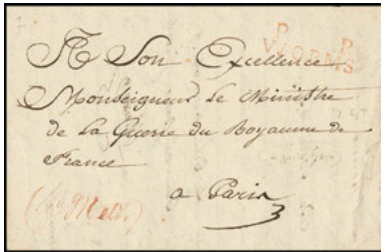 P P
WORMS
A Son Excellence
Monseigneur Le Ministre
de La Guerre du Royaume de
France
a Paris